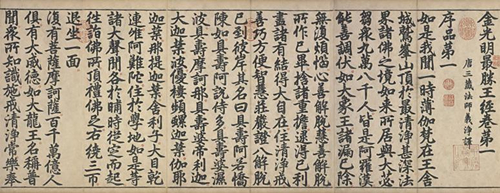 金光明最勝王經卷第一
序品第一　唐三藏法師義淨譯
如是我聞一時薄伽梵在王舍
城鷲峯山頂於最清淨甚深法
界諸佛之境如來所居與大苾
芻衆九萬八千人皆是阿羅漢
能善調伏如大象王諸漏已除
無復煩惱心善解脫慧善解脫
所作已畢捨諸重擔逮得己利
盡諸有結得大自在住清淨戒
善巧方便智慧莊嚴證八解脫
已到彼岸其名曰具壽阿若憍
陳如具壽阿說侍多具壽婆濕
波具壽摩訶那摩具壽婆帝利迦
大迦葉波優樓頻螺迦葉伽耶
迦葉那提迦葉舍利子大目乾
連唯阿難陀住於學地如是等
諸大聲聞各於晡時從定而起
往詣佛所頂禮佛足右繞三帀
退坐一面
復有菩薩摩訶薩百千萬億人
俱有大威德如大龍王名稱普
聞衆所知識施戒清淨常樂奉